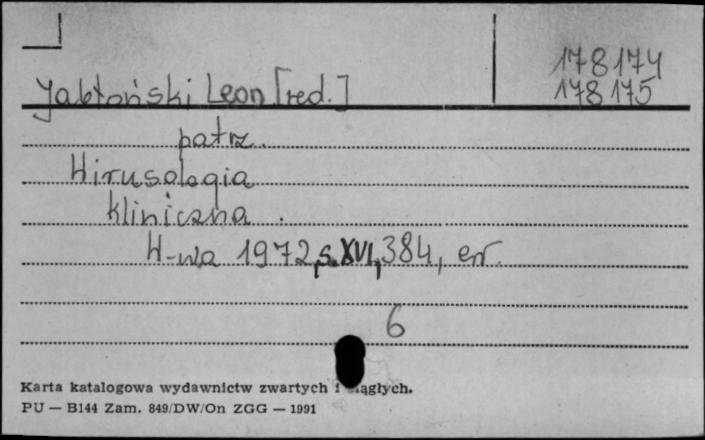 178174
178175
Jabłoński Leon [red.]
patrz.
Wirusologia
kliniczna.
W-wa 1972, s. XVI, 384, err.
6
Karta katalogowa wydawnictw zwartych i ciągłych.
PU — B144 Zam. 849/DW/On ZGG — 1991